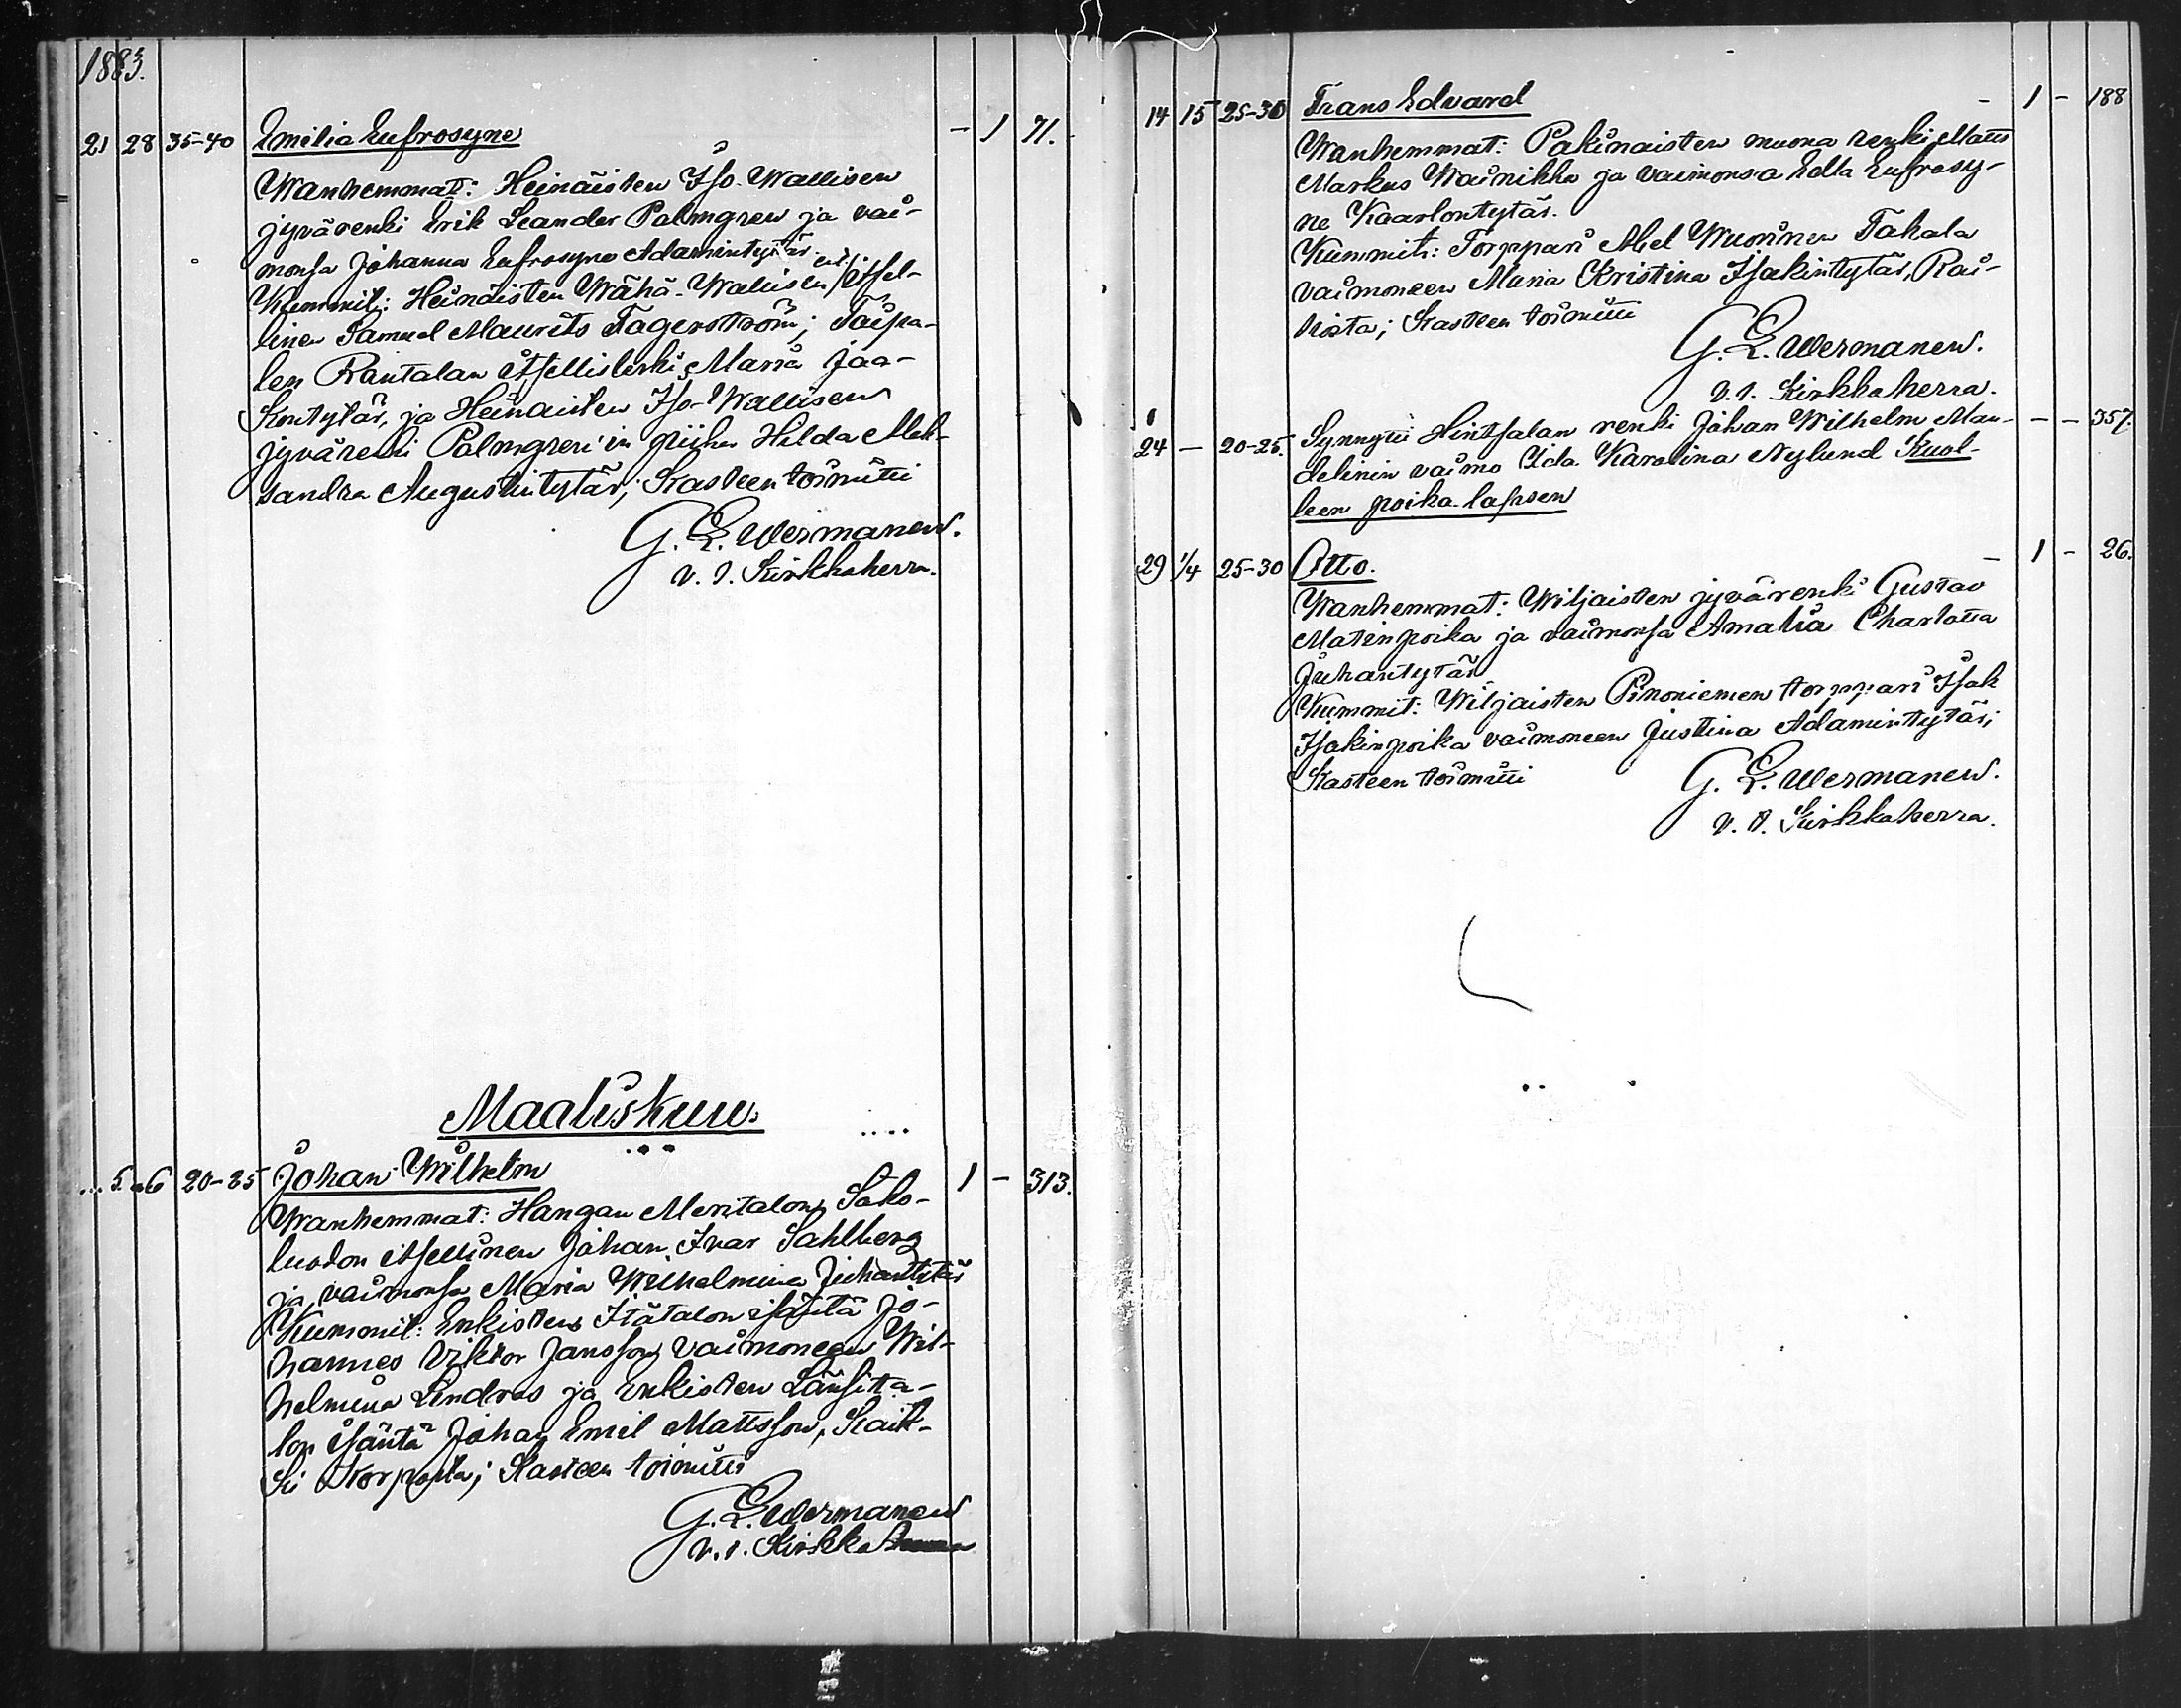 1883.
21 28 35-40 Emilia Eufrosyne - 1 71.
Wanhemmat: Heinäisten Iso-Wallisen
jyvärenki Erik Leander Palmgren ja vai-
monsa Johanna Eufrosyne Adamintytär
Kummit: Heinäisten Wähä-Wallisen itsel-
linen Samuel Maurits Fagerström; Taipa-
len Rantalan itsellisleski Maria Jaa-
kontytär, ja Heinäisten Iso-Wallisen
jyvärenki Palmgren'in piika Hilda Alek-
sandra Augustintytär; Kasteen toimitti
G. L. Wermanen.
v. t. Kirkkoherra.
Maaliskuu.
5. 6 20-25 Johan Wilhelm 1 - 313.
Wanhemmat: Hangan Meritalon Sako-
luodon itsellinen Johan Ivar Sahlberg
ja vaimonsa Maria Wilhelmina Juhantytär
Kummit: Enkisten Itätalon isäntä Jo-
hannes Viktor Jansson vaimoneen Wil-
helmina Lindros ja Enkisten Länsita-
lon isäntä Johan Emil Mattsson, Kaik-
ki Korposta; Kasteen toimitti
G. L. Wermanen
v. t. Kirkko
14 15 25-30 Frans Edvard - 1 - 188
Wanhemmat: Pakinaisten muona renki Matts
Markus Wainikka ja vaimonsa Edla Eufrosy-
ne Kaarlontytär.
Kummit: Torppari Abel Wuorinen Takala
vaimoneen Maria Kristina Isakintytär, Rai-
siosta; Kasteen toimitti
G. L. Wermanen.
v. t. Kirkkoherra.
24 - 20-25. Synnytti Hintsalan renki Johan Wilhelm Man- - - 357.
delinin vaimo Ida Karolina Nylund Kuol-
leen poika-lapsen
29 1/4 25-30 Otto. - 1 - 26.
Wanhemmat: Wiljaisten jyvärenki Gustav
Matinpoika ja vaimonsa Amalia Charlotta
Juhantytär
Kummit: Wiljaisten Pinoniemen torppari Isak
Isakinpoika vaimoneen Justina Adamintytär;
Kasteen toimitti
G. L. Wermanen.
v. t. Kirkkoherra.